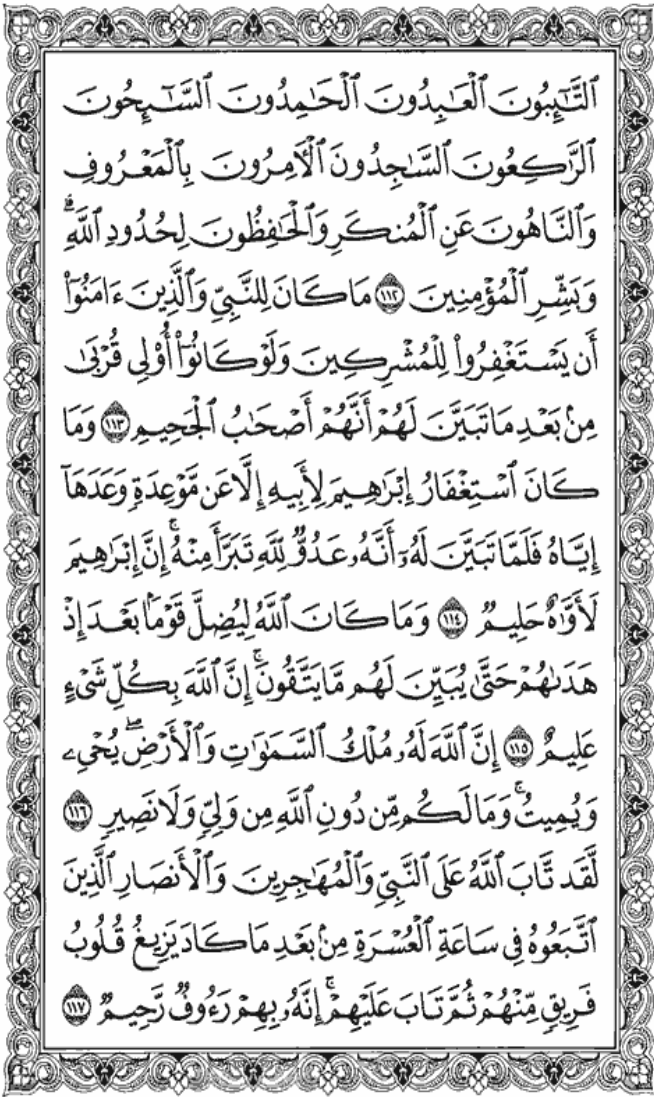 ٱلتَّٰٓئِبُونَ ٱلْعَٰبِدُونَ ٱلْحَٰمِدُونَ ٱلسَّٰٓئِحُونَ
ٱلرَّٰكِعُونَ ٱلسَّٰجِدُونَ ٱلْءَامِرُونَ بِٱلْمَعْرُوفِ
وَٱلنَّاهُونَ عَنِ ٱلْمُنكَرِ وَٱلْحَٰفِظُونَ لِحُدُودِ ٱللَّهِۗ
وَبَشِّرِ ٱلْمُؤْمِنِينَ ١١٢ مَا كَانَ لِلنَّبِيِّ وَٱلَّذِينَ ءَامَنُوٓا۟
أَن يَسْتَغْفِرُوا۟ لِلْمُشْرِكِينَ وَلَوْ كَانُوٓا۟ أُو۟لِى قُرْبَىٰ
مِنۢ بَعْدِ مَا تَبَيَّنَ لَهُمْ أَنَّهُمْ أَصْحَٰبُ ٱلْجَحِيمِ ١١٣ وَمَا
كَانَ ٱسْتِغْفَارُ إِبْرَٰهِيمَ لِأَبِيهِ إِلَّا عَن مَّوْعِدَةٍ وَعَدَهَآ
إِيَّاهُ فَلَمَّا تَبَيَّنَ لَهُۥٓ أَنَّهُۥ عَدُوٌّ لِّلَّهِ تَبَرَّأَ مِنْهُۚ إِنَّ إِبْرَٰهِيمَ
لَأَوَّٰهٌ حَلِيمٌ ١١٤ وَمَا كَانَ ٱللَّهُ لِيُضِلَّ قَوْمًۢا بَعْدَ إِذْ
هَدَىٰهُمْ حَتَّىٰ يُبَيِّنَ لَهُم مَّا يَتَّقُونَۚ إِنَّ ٱللَّهَ بِكُلِّ شَىْءٍ
عَلِيمٌ ١١٥ إِنَّ ٱللَّهَ لَهُۥ مُلْكُ ٱلسَّمَٰوَٰتِ وَٱلْأَرْضِۖ يُحْىِۦ
وَيُمِيتُۚ وَمَا لَكُم مِّن دُونِ ٱللَّهِ مِن وَلِىٍّ وَلَا نَصِيرٍ ١١٦
لَّقَد تَّابَ ٱللَّهُ عَلَى ٱلنَّبِىِّ وَٱلْمُهَٰجِرِينَ وَٱلْأَنصَارِ ٱلَّذِينَ
ٱتَّبَعُوهُ فِى سَاعَةِ ٱلْعُسْرَةِ مِنۢ بَعْدِ مَا كَادَ يَزِيغُ قُلُوبُ
فَرِيقٍ مِّنْهُمْ ثُمَّ تَابَ عَلَيْهِمْۚ إِنَّهُۥ بِهِمْ رَءُوفٌ رَّحِيمٌ ١١٧